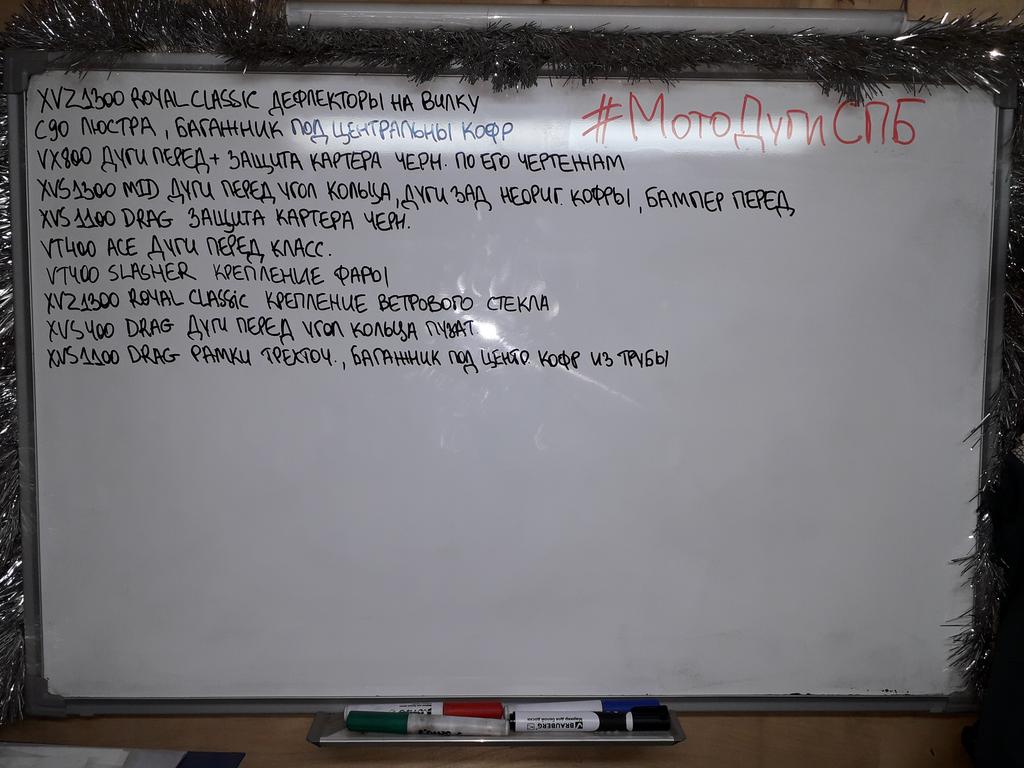 XVZ1300 ROYAL CLASSIC ДЕФЛЕКТОРЫ НА ВИЛКУ
#МотоДугиСПБ
C90 ЛЮСТРА, БАГАЖНИК ПОД ЦЕНТРАЛЬНЫ КОФР
VX800 ДУГИ ПЕРЕД + ЗАЩИТА КАРТЕРА ЧЕРН. ПО ЕГО ЧЕРТЕЖАМ
XVS1300 MID ДУГИ ПЕРЕД УГОЛ КОЛЬЦА, ДУГИ ЗАД НЕОРИГ. КОФРЫ, БАМПЕР ПЕРЕД
XVS1100 DRAG ЗАЩИТА КАРТЕРА ЧЕРН.
VT400 ACE ДУГИ ПЕРЕД КЛАСС.
VT400 SLASHER КРЕПЛЕНИЕ ФАРЫ
XVZ1300 ROYAL CLASSIC КРЕПЛЕНИЕ ВЕТРОВОГО СТЕКЛА
XVS400 DRAG ДУГИ ПЕРЕД УГОЛ КОЛЬЦА ПУЗАТ.
XVS1100 DRAG РАМКИ ТРЕХТОЧ., БАГАЖНИК ПОД ЦЕНТР. КОФР ИЗ ТРУБЫ
BRAUBERG